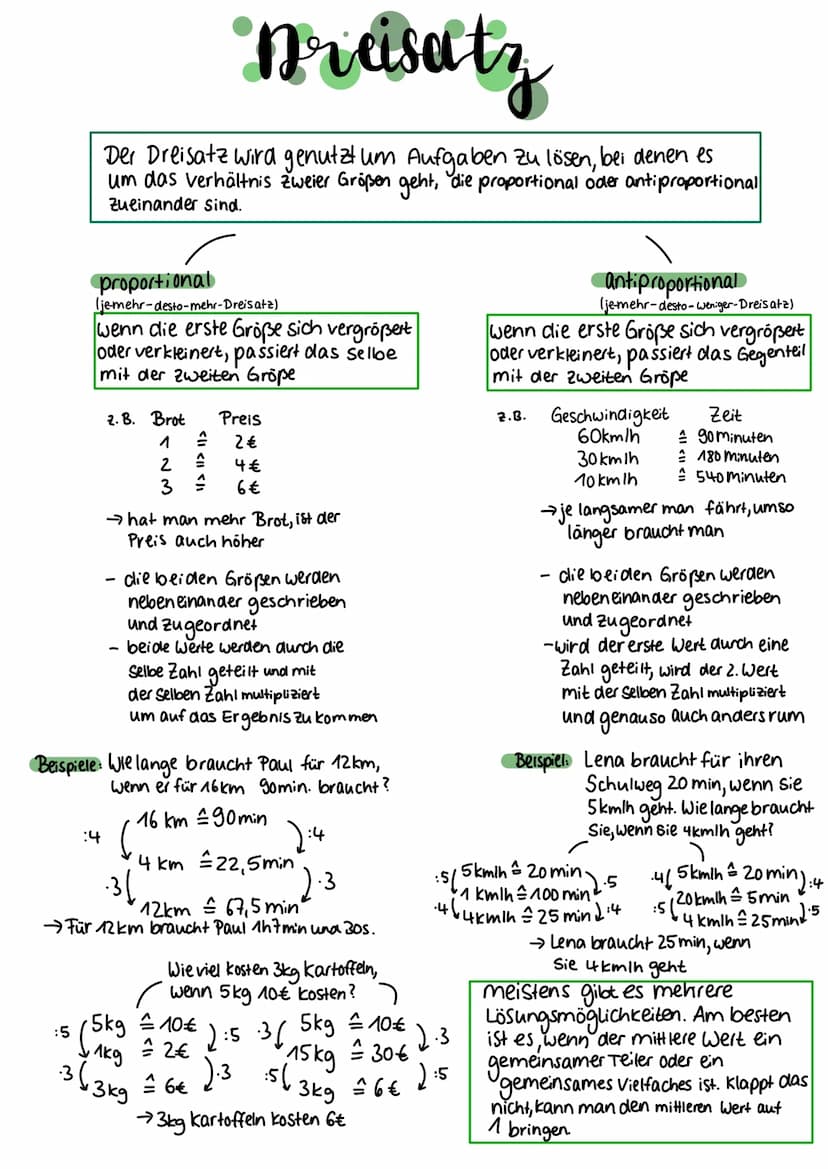 Dreisatz
Der Dreisatz wird genutzt um Aufgaben zu lösen, bei denen es
um das Verhältnis zweier Größen geht, die proportional oder antiproportional
zueinander sind.
proportional
(je-mehr-desto-mehr-Dreisatz)
wenn die erste Größe sich vergrößert
oder verkleinert, passiert das selbe
mit der zweiten Größe
z.B. Brot Preis
1 ≙ 2€
2 ≙ 4€
3 ≙ 6€
→ hat man mehr Brot, ist der
Preis auch höher
- die beiden Größen werden
nebeneinander geschrieben
und zugeordnet
- beide Werte werden durch die
selbe Zahl geteilt und mit
der selben Zahl multipliziert
um auf das Ergebnis zu kommen
Beispiele: Wie lange braucht Paul für 12km,
wenn er für 16km 90min. braucht?
:4 16 km ≙ 90min :4
4 km ≙ 22,5min
·3 ·3
12km ≙ 67,5min
→ Für 12km braucht Paul 1h7min und 30s.
Wie viel kosten 3kg Kartoffeln,
wenn 5kg 10€ kosten?
:5 5kg ≙ 10€ :5
1kg ≙ 2€
·3 3kg ≙ 6€ ·3
·3 5kg ≙ 10€ ·3
15kg ≙ 30€
:5 3kg ≙ 6€ :5
→ 3kg Kartoffeln kosten 6€
antiproportional
(je-mehr-desto-weniger-Dreisatz)
wenn die erste Größe sich vergrößert
oder verkleinert, passiert das Gegenteil
mit der zweiten Größe
z.B. Geschwindigkeit Zeit
60km/h ≙ 90 Minuten
30km/h ≙ 180 Minuten
10km/h ≙ 540 Minuten
→ je langsamer man fährt, umso
länger braucht man
- die beiden Größen werden
nebeneinander geschrieben
und zugeordnet
- wird der erste Wert durch eine
Zahl geteilt, wird der 2. Wert
mit der selben Zahl multipliziert
und genauso auch anders rum
Beispiel: Lena braucht für ihren
Schulweg 20 min, wenn sie
5km/h geht. Wie lange braucht
Sie, wenn sie 4km/h geht?
:5 5km/h ≙ 20min ·5
1 km/h ≙ 100 min
·4 4km/h ≙ 25 min :4
·4 5km/h ≙ 20min :4
20km/h ≙ 5min
:5 4 km/h ≙ 25min ·5
→ Lena braucht 25min, wenn
Sie 4km/h geht
meistens gibt es mehrere
Lösungsmöglichkeiten. Am besten
ist es, wenn der mittlere Wert ein
gemeinsamer Teiler oder ein
gemeinsames Vielfaches ist. Klappt das
nicht, kann man den mittleren Wert auf
1 bringen